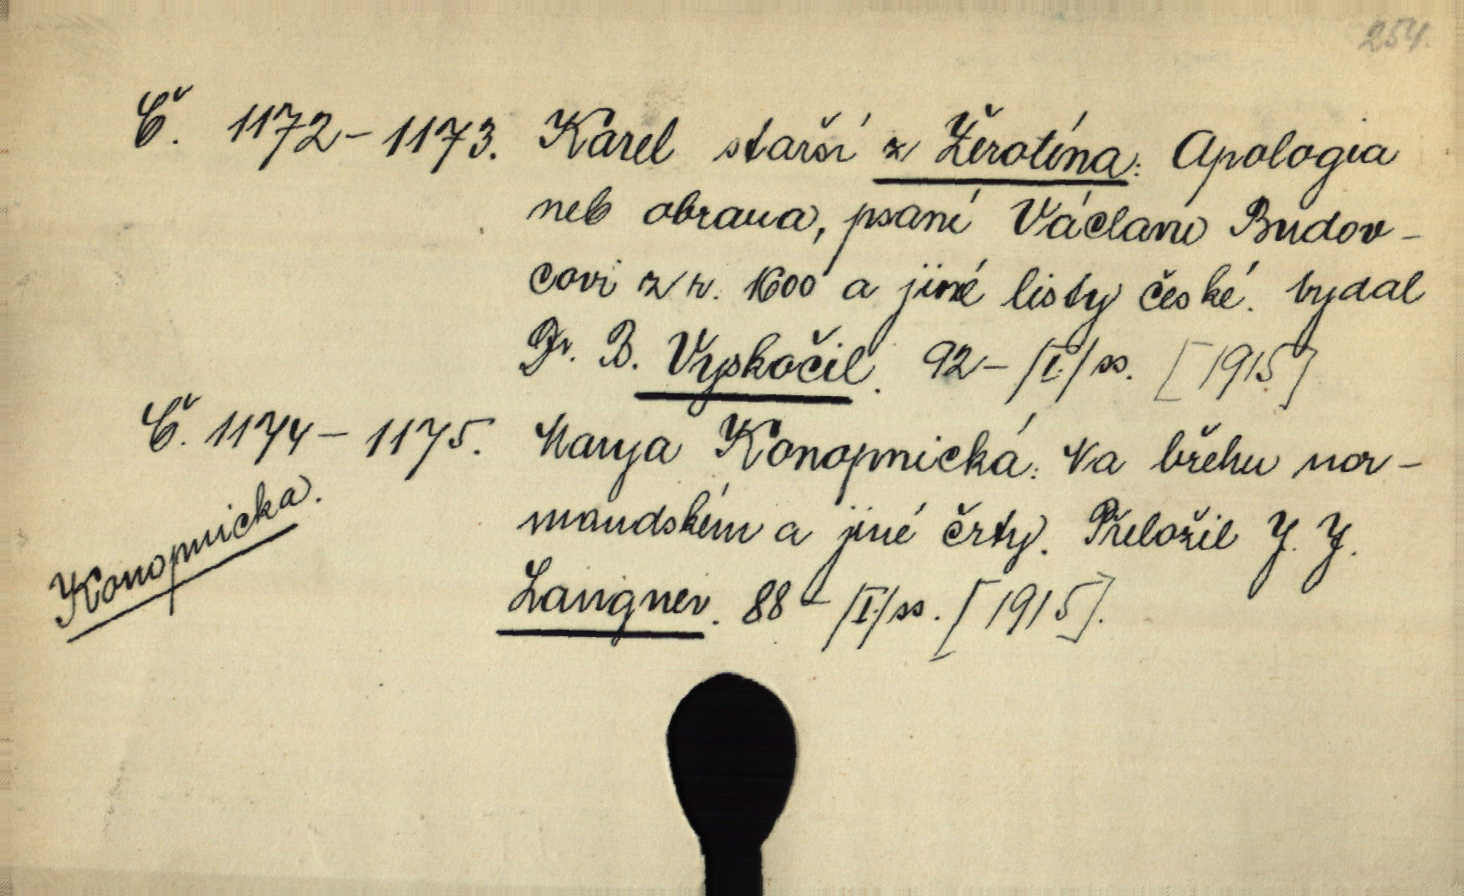 254.
Č. 1172-1173. Karel starší z Žerotína: Apologia
neb obrana, psaní Václavu Budov-
covi z r. 1600 a jiné listy české. Vydal
Dr. B. Vyskočil. 92-/I./ss. [1915]
Č. 1174-1175. Marya Konopnická: Na břehu nor-
mandském a jiné črty. Přeložil J. J.
Langner. 88-/I./ss. [1915].
Konopnicka.